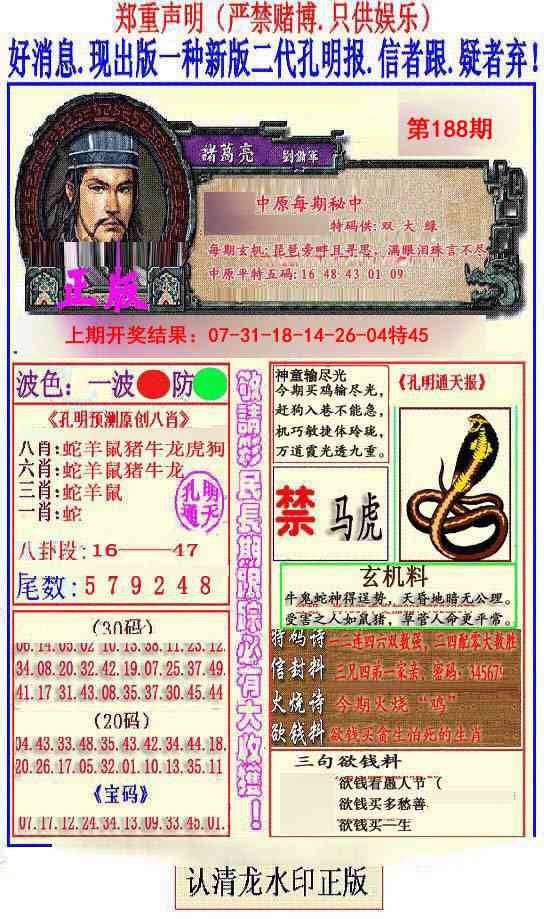 郑重声明（严禁赌博.只供娱乐）
好消息.现出版一种新版二代孔明报.信者跟.疑者弃！
第188期
諸葛亮 劉備軍
中原每期秘中
特码供:双 大 綠
每期玄机:琵琶旁畔且寻思，满眼泪珠言不尽
中原平特五码:16 48 43 01 09
正版
上期开奖结果：07-31-18-14-26-04特45
波色：一波 防
《孔明预测原创八肖》
八肖:蛇羊鼠猪牛龙虎狗
六肖:蛇羊鼠猪牛龙
三肖:蛇羊鼠
一肖:蛇
孔明
通天
八卦段:16——47
尾数:579248
(30码)
06.14.03.02 10.13.38.11.23.12
34.08.20.32.42.19.07.25.37.49.
41.17.31.43.08.35.37.30.45.44
(20码)
04.43.33.48.35.43.42.34.44.18.
20.26.17.05.32.01.10.13.35.11
《宝码》
07.17.12.24.34.13.09.33.45.01.
敬請彩民長期跟踪必有大收獲！
神童输尽光
今期买鸡输尽光，
赶狗入巷不能急，
机巧敏捷体玲珑，
万道霞光透九重。
《孔明通天报》
禁 马虎
玄机料
牛鬼蛇神得逞势，天昏地暗无公理。
受害之人如鼠猪，草菅人命更平常。
特码诗 一二连四六双数强，三四配零大数胜
信封料 三兄四弟一家亲，密码：345679
火烧诗 今期火烧“鸡”
欲钱料 欲钱买贪生治死的生肖
三句欲钱料
欲钱看愚人节（
欲钱买多愁善
欲钱买一生
认清龙水印正版